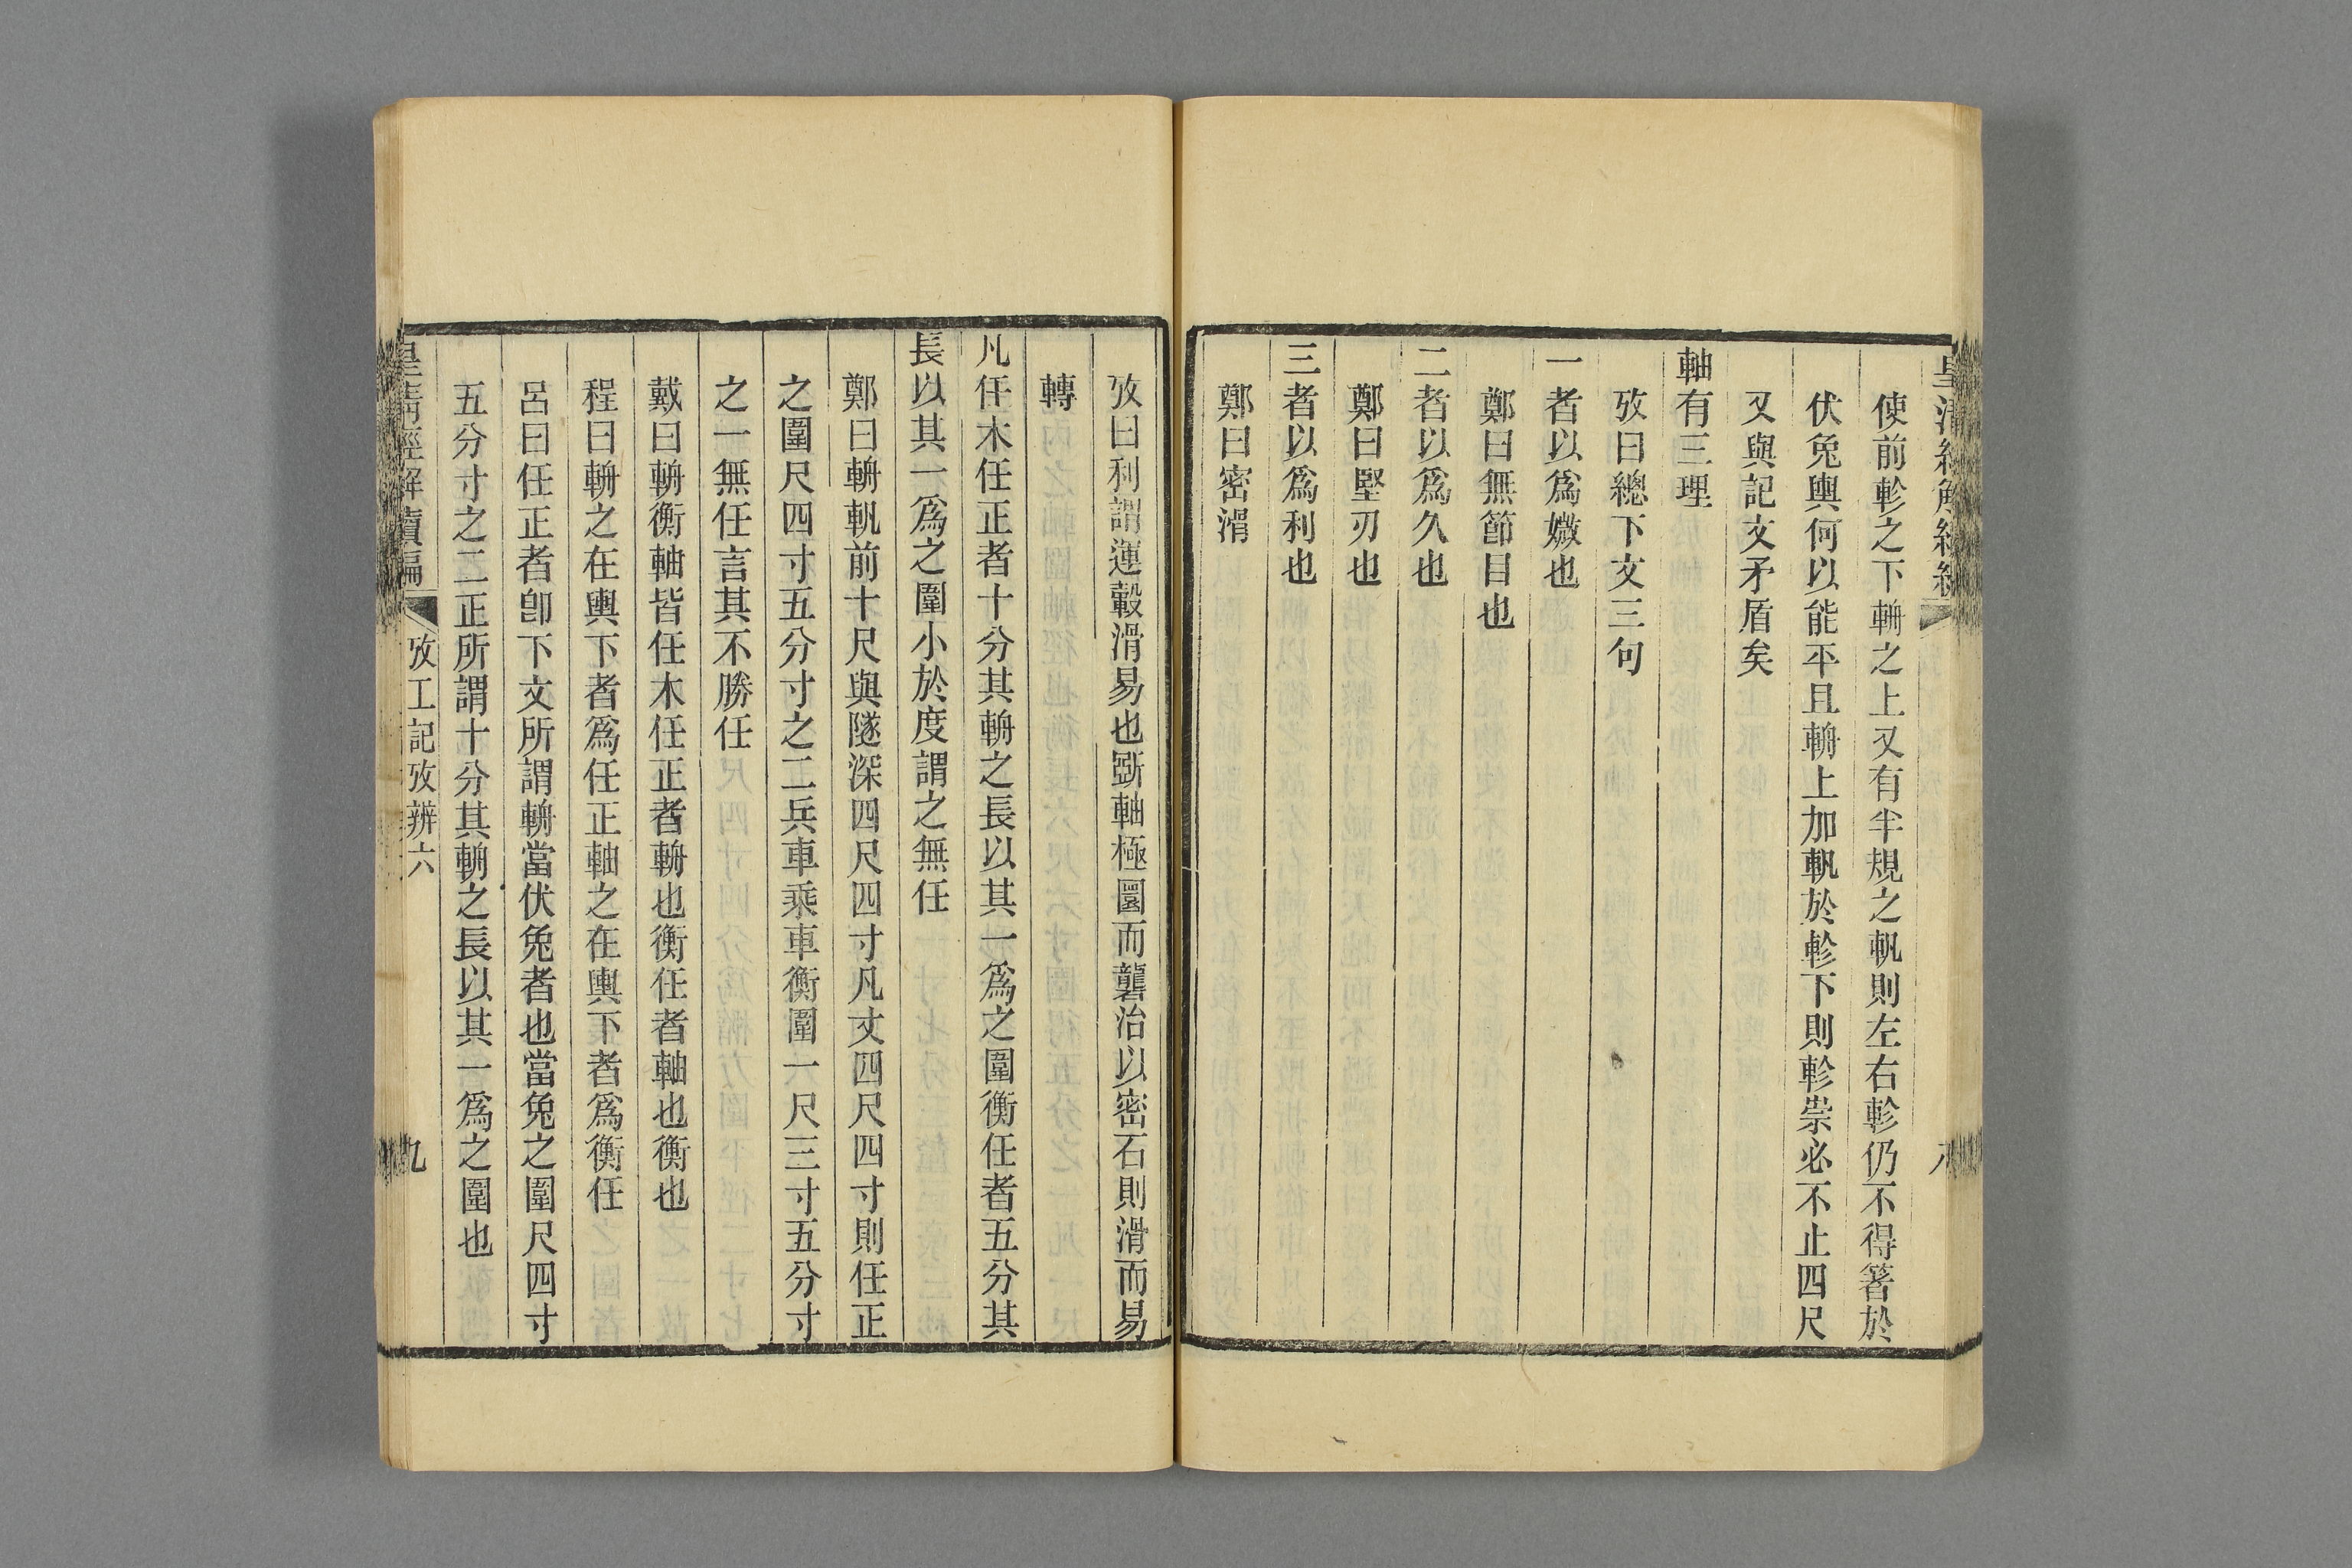 使前軫之下輈之上又有半規之軓則左右軫仍不得箸於
伏兔輿何以能平且輈上加軓於軫下則軫崇必不止四尺
又與記文矛盾矣
軸有三理
攷曰總下文三句
一者以爲媺也
鄭曰無節目也
二者以爲久也
鄭曰堅刃也
三者以爲利也
鄭曰密滑
攷曰利謂運轂滑易也斲軸極圜而礱治以密石則滑而易
轉
凡任木任正者十分其輈之長以其一爲之圍衡任者五分其
長以其一爲之圍小於度謂之無任
鄭曰輈軓前十尺與隧深四尺四寸凡丈四尺四寸則任正
之圍尺四寸五分寸之二兵車乘車衡圍一尺三寸五分寸
之一無任言其不勝任
戴曰輈衡軸皆任木任正者輈也衡任者軸也衡也
程曰輈之在輿下者爲任正軸之在輿下者爲衡任
呂曰任正者卽下文所謂輈當伏兔者也當兔之圍尺四寸
五分寸之二正所謂十分其輈之長以其一爲之圍也
皇清經解續編
攷工記攷辨六
九